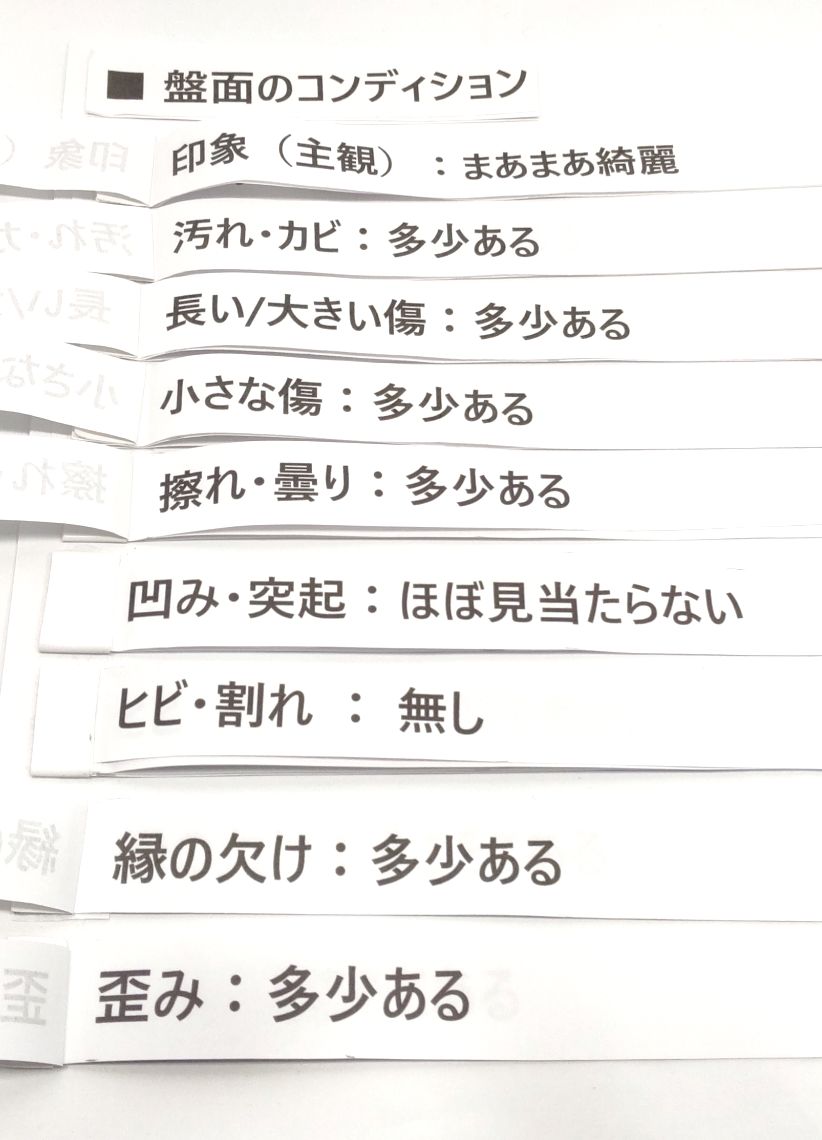 ■ 盤面のコンディション
印象（主観）：まあまあ綺麗
汚れ・カビ：多少ある
長い/大きい傷：多少ある
小さな傷：多少ある
擦れ・曇り：多少ある
凹み・突起：ほぼ見当たらない
ヒビ・割れ ： 無し
縁の欠け：多少ある
歪み：多少ある